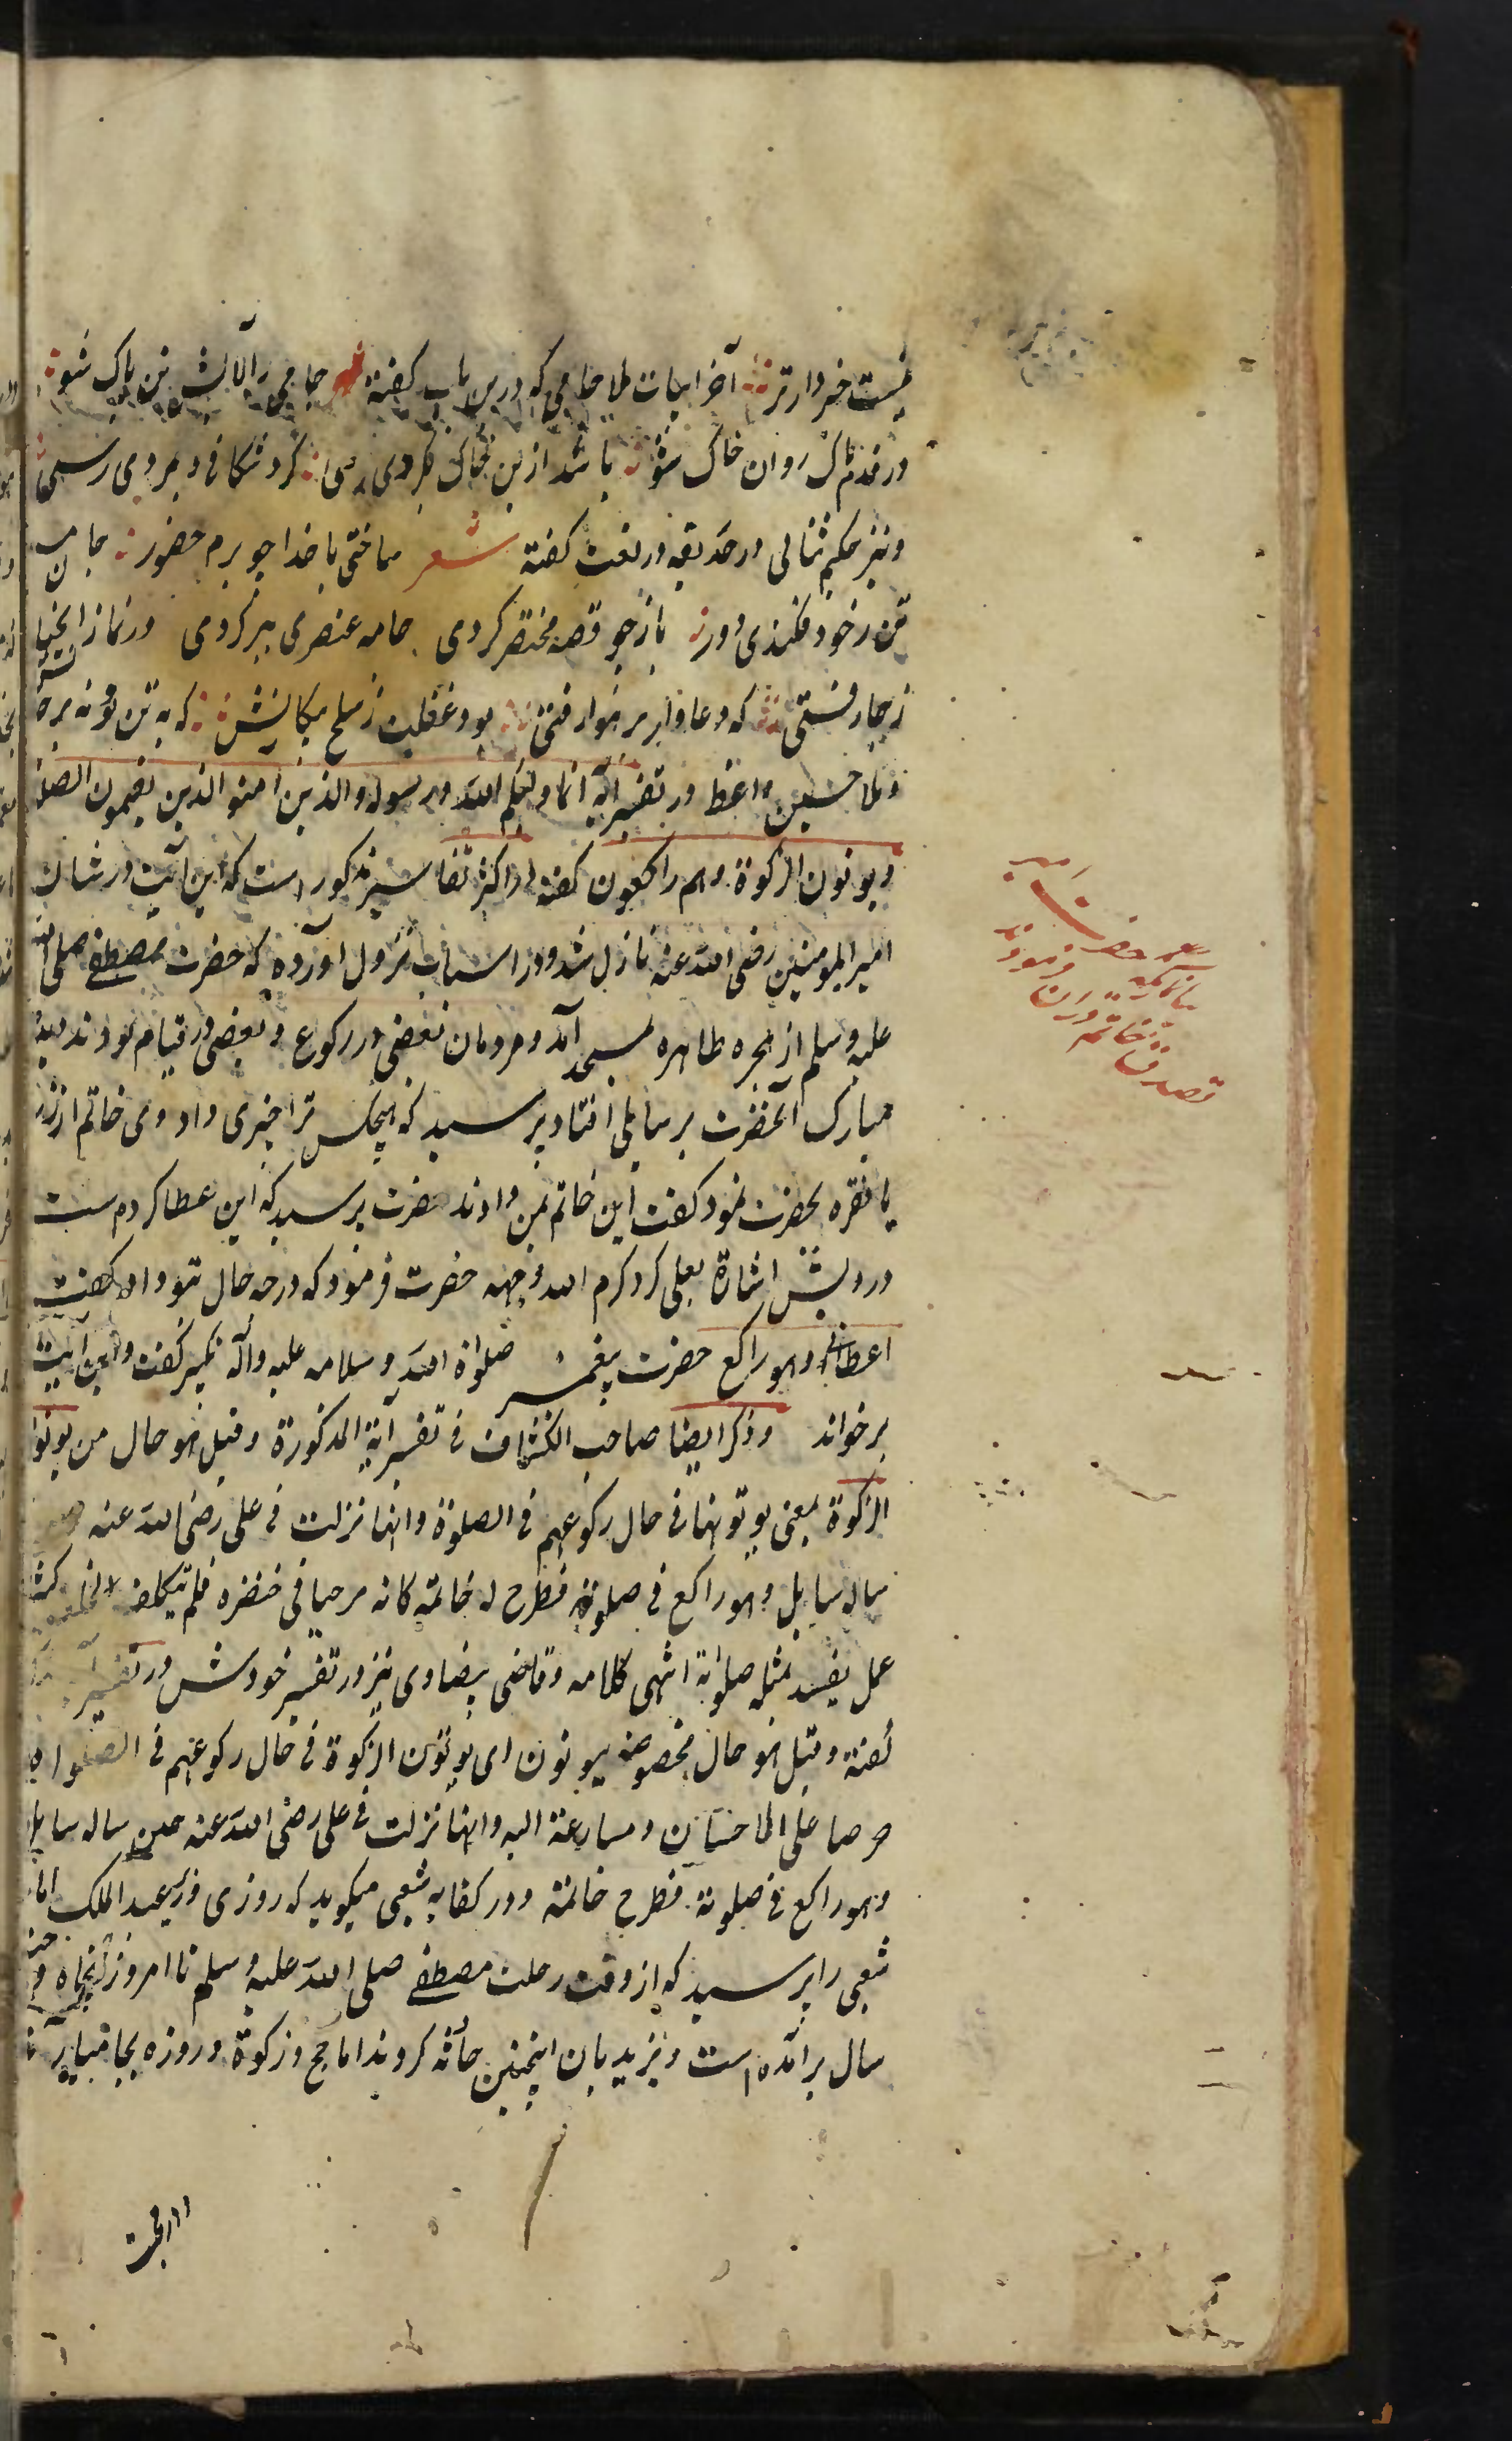 نیست خبردارتر آخر ابیات ملا جامی که درین باب گفته شعر جامی ز آلایش تن پاک شو
در قدم پاک روان خاک شو باشد ازین خاک بگردی رسی گرد شکافی و بمردی رسی
و نیز حکیم ثنائی در حدیقه در نعت گفته شعر ساختی با خدا چو بزم حضور جان
تن ز خود فکندی دور باز چو قصه مختصر کردی جامه عنصری ببر کردی در نماز
که دعاوار بر هوا رفتی بود غفلت ز صلح پیکانش که به تن
و ملا حسین واعظ در تفسیر آیه انما ولیکم الله و رسوله والذین امنو الذین یقیمون الصلوة
و یوتون الزکوة وهم راکعون گفته که در اکثر تفاسیر مذکور است که این آیت در شان
امیر المومنین رضی الله عنه نازل شد و در اسباب نزول اورده که حضرت مصطفی صلی الله
علیه وسلم از حجره طاهره بمسجد آمد و مردمان بعضی در رکوع و بعضی در قیام بودند دیده
مبارک آنحضرت بر سایلی افتاد پرسید که هیچکس ترا چیزی داد وی خاتم از زر
یا نقره بحضرت نمود گفت این خاتم بمن دادند حضرت پرسید که این عطا کردست
درویش اشارة بعلی کرد کرم الله وجهه حضرت فرمود که در چه حال بتو داد گفت
اعطانی وهو راکع حضرت پیغمبر صلواة الله وسلامه علیه وآله تکبیر گفت و این آیت
برخواند وذکر ایضا صاحب الکشاف فی تفسیر آیة المذکورة وقیل هو حال من یوتون
الزکوة بمعنی یوتونها فی حال رکوعهم فی الصلوة وانها نزلت فی علی رضی الله عنه حین
ساله سایل وهو راکع فی صلوته فطرح له خاتمه کانه مرجیا فی خنصره فلم یتکلف لخلعه کثیر
عمل یفسد بمثله صلوته انتهی کلامه و قاضی بیضاوی نیز در تفسیر خودش در تفسیر
گفته وقیل هو حال مخصوصه بیوتون ای یوتون الزکوة فی حال رکوعهم فی الصلواه
حرصا علی الاحسان ومسارعة الیه وانها نزلت فی علی رضی الله عنه حین ساله سایل
وهو راکع فی صلوته فطرح خاتمه و در کفایه شعبی میگوید که روزی وزیر عبد الملک
شعبی را پرسید که از وقت رحلت مصطفی صلی الله علیه وسلم تا امروز پنجاه و
سال برآمده است و یزیدیان اینچنین کردند اما حج و زکوة و روزه بجا
حضرت امیر
فرمودند
تصدق خاتم دران